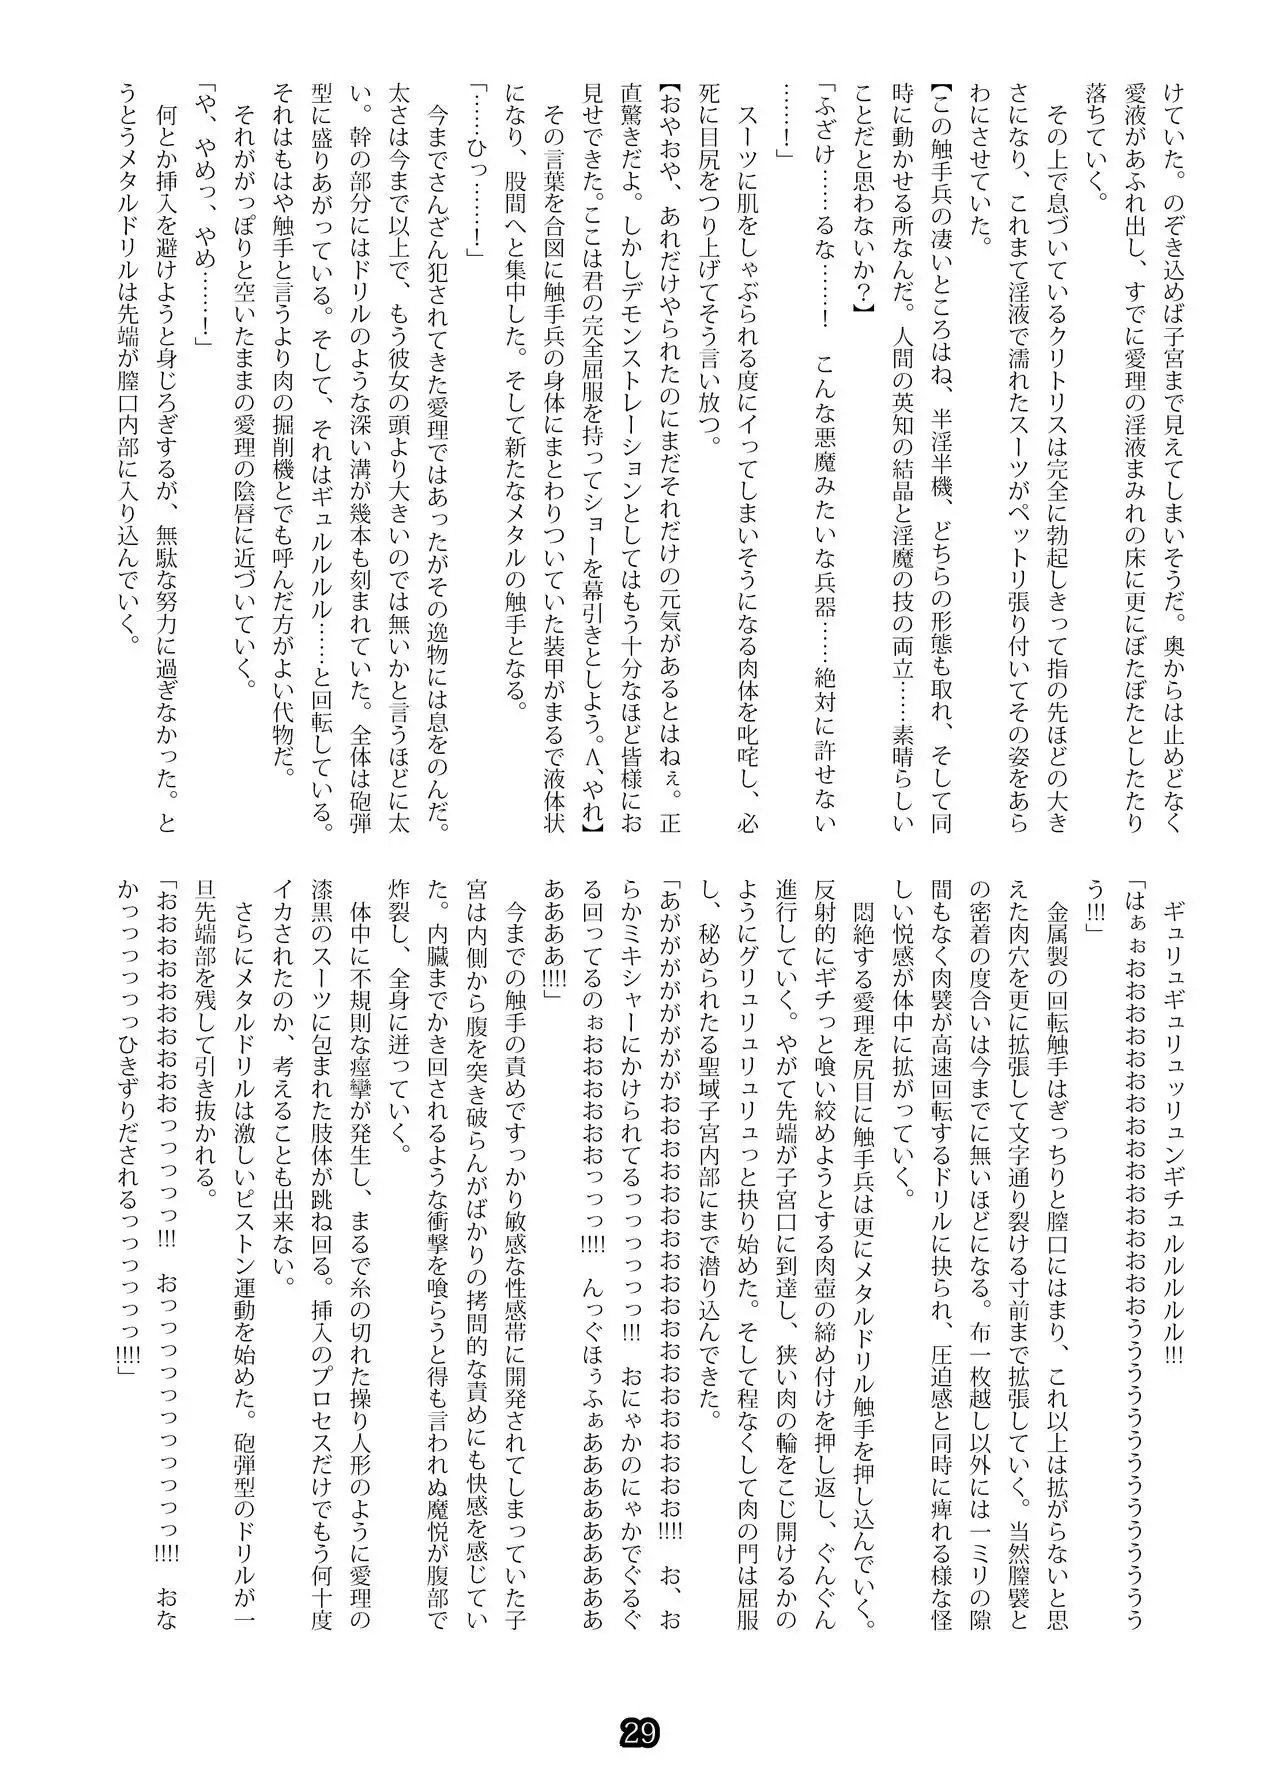 けていた。のぞき込めば子宮まで見えてしまいそうだ。奥からは止めどなく
愛液があふれ出し、すでに愛理の淫液まみれの床に更にぼたぼたとしたたり
落ちていく。
その上で息づいているクリトリスは完全に勃起しきって指の先ほどの大き
さになり、これまて淫液で濡れたスーツがペットリ張り付いてその姿をあら
わにさせていた。
【この触手兵の凄いところはね、半淫半機、どちらの形態も取れ、そして同
時に動かせる所なんだ。人間の英知の結晶と淫魔の技の両立……素晴らしい
ことだと思わないか？】
「ふざけ……るな……！　こんな悪魔みたいな兵器……絶対に許せない
……！」
スーツに肌をしゃぶられる度にイってしまいそうになる肉体を叱咤し、必
死に目尻をつり上げてそう言い放つ。
【おやおや、あれだけやられたのにまだそれだけの元気があるとはねぇ。正
直驚きだよ。しかしデモンストレーションとしてはもう十分なほど皆様にお
見せできた。ここは君の完全屈服を持ってショーを幕引きとしよう。Λ、やれ】
その言葉を合図に触手兵の身体にまとわりついていた装甲がまるで液体状
になり、股間へと集中した。そして新たなメタルの触手となる。
「……ひっ……！」
今までさんざん犯されてきた愛理ではあったがその逸物には息をのんだ。
太さは今まで以上で、もう彼女の頭より大きいのでは無いかと言うほどに太
い。幹の部分にはドリルのような深い溝が幾本も刻まれていた。全体は砲弾
型に盛りあがっている。そして、それはギュルルルル……と回転している。
それはもはや触手と言うより肉の掘削機とでも呼んだ方がよい代物だ。
それががっぽりと空いたままの愛理の陰唇に近づいていく。
「や、やめっ、やめ……！」
何とか挿入を避けようと身じろぎするが、無駄な努力に過ぎなかった。と
うとうメタルドリルは先端が膣口内部に入り込んでいく。
ギュリュギュリュッリュンギチュルルルルル!!!
「はぁぉおおおおおおおおおおおおおおおおおうううううううううううううう
う!!!」
金属製の回転触手はぎっちりと膣口にはまり、これ以上は拡がらないと思
えた肉穴を更に拡張して文字通り裂ける寸前まで拡張していく。当然膣襞と
の密着の度合いは今までに無いほどになる。布一枚越し以外には一ミリの隙
間もなく肉襞が高速回転するドリルに抉られ、圧迫感と同時に痺れる様な怪
しい悦感が体中に拡がっていく。
悶絶する愛理を尻目に触手兵は更にメタルドリル触手を押し込んでいく。
反射的にギチっと喰い絞めようとする肉壺の締め付けを押し返し、ぐんぐん
進行していく。やがて先端が子宮口に到達し、狭い肉の輪をこじ開けるかの
ようにグリュリュリュリュっと抉り始めた。そして程なくして肉の門は屈服
し、秘められたる聖域子宮内部にまで潜り込んできた。
「あがががががががががおおおおおおおおおおおおおおおおおおおお!!!!　お、お
らかミキシャーにかけられてるっっっっっっ!!!　おにゃかのにゃかでぐるぐ
る回ってるのぉおおおおおおっっっ!!!!　んっぐほぅふぁああああああああああ
ああああ!!!!」
今までの触手の責めですっかり敏感な性感帯に開発されてしまっていた子
宮は内側から腹を突き破らんがばかりの拷問的な責めにも快感を感じてい
た。内臓までかき回されるような衝撃を喰らうと得も言われぬ魔悦が腹部で
炸裂し、全身に迸っていく。
体中に不規則な痙攣が発生し、まるで糸の切れた操り人形のように愛理の
漆黒のスーツに包まれた肢体が跳ね回る。挿入のプロセスだけでもう何十度
イカされたのか、考えることも出来ない。
さらにメタルドリルは激しいピストン運動を始めた。砲弾型のドリルが一
旦先端部を残して引き抜かれる。
「おおおおおおおおおおおっっっっっ!!!　おっっっっっっっっっっっ!!!!　おな
かっっっっっっひきずりだされるっっっっっっ!!!!」
29